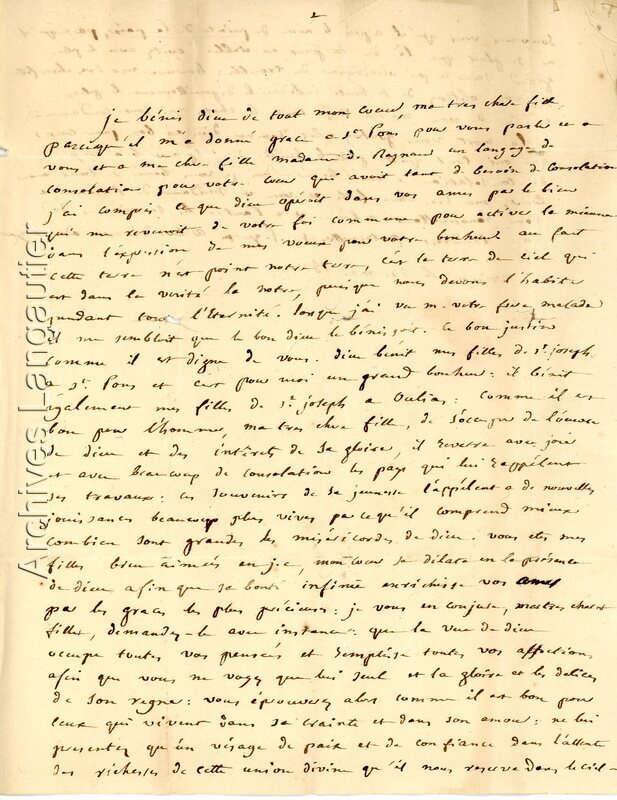 2
je bénis dieu de tout mon coeur, ma tres chere fille
parcequ'il m'a donné grace a st. Pons pour vous parler a
vous et a ma chere fille madame de Raynaud un langage de
consolation pour votre coeur qui avoit tant de besoin de consolation
j'ai compris ce que dieu opéroit dans vos ames par le bien
qui me revenoit de votre foi commune pour activer la mienne
dans l'expression de mes voeux pour votre bonheur au fait
cette terre n'est point notre terre, c'est la terre du ciel qui
est dans la verité la notre, puisque nous devons l'habiter
pendant toute l'Eternité. lorsque j'ai vu m. votre frere malade
il me sembloit que le bon dieu le bénissoit. ce bon justin
comme il est digne de vous. dieu bénit mes filles de st. joseph
a st. Pons et c'est pour moi un grand bonheur : il bénit
également mes filles de st. joseph a Oulias : comme il est
bon pour l'homme, ma tres chere fille, de s'occuper de l'oeuvre
de dieu et des intérêts de sa gloire, il traverse avec joie
et avec beaucoup de consolation les pays qui lui rappèlent
ses travaux : ces souvenirs de sa jeunesse l'appèlent a de nouvelles
jouissances beaucoup plus vives parcequ'il comprend mieux
combien sont grandes les miséricordes de dieu. vous etes mes
filles bien aimées en j.c, mon coeur se dilate en la présence
de dieu afin que sa bonté infinie enrichisse vos ames
par les graces les plus précieuses : je vous en conjure, ma tres chere
fille, demandez-le avec instance : que la vue de dieu
occupe toutes vos pensées et remplisse toutes vos affections
afin que vous ne voyez que lui seul et la gloire et les délices
de son regne : vous éprouverez alors comme il est bon pour
ceux qui vivent dans sa crainte et dans son amour : ne lui
presentez qu'un visage de paix et de confiance dans l'attente
des richesses de cette union divine qu'il nous reserve dans le ciel
Archives J. Langautier